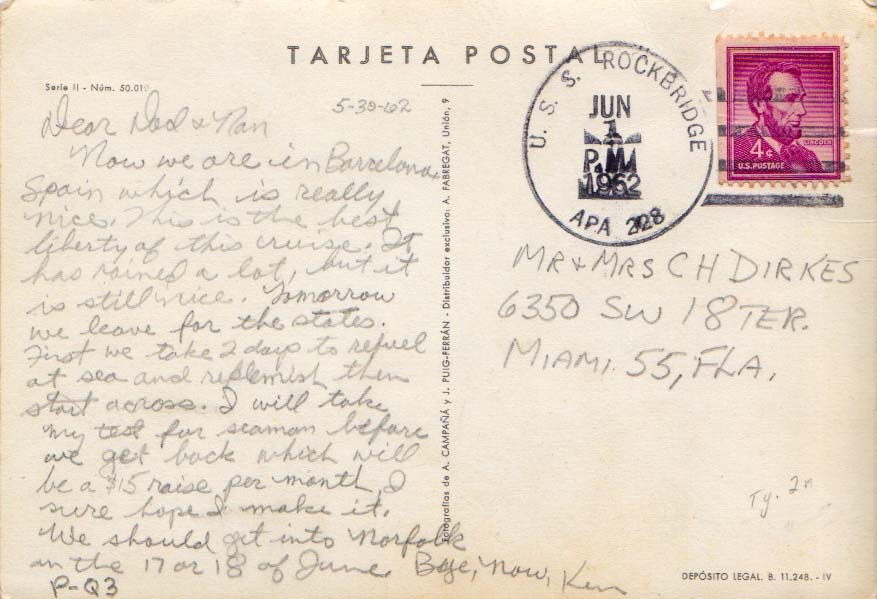 TARJETA POSTAL
Serie II - Núm. 50.019
5-30-62
Dear Dad & Nan
Now we are in Barcelona
Spain which is really
nice. This is the best
liberty of this cruise. It
has rained a lot, but it
is still nice. Tomorrow
we leave for the states.
First we take 2 days to refuel
at sea and replenish then
start across. I will take
my test for seaman before
we get back which will
be a $15 raise per month, I
sure hope I make it.
We should get into Norfolk
on the 17 or 18 of June Bye, Now, Ken
P-Q3
Fotografías de A. CAMPAÑÁ y J. PUIG-FERRÁN - Distribuidor exclusivo: A. FABREGAT, Unión, 9
U. S. S. ROCKBRIDGE
JUN
1
P.M.
1962
APA 228
4¢
LINCOLN
U.S. POSTAGE
MR & MRS C H DIRKES
6350 SW 18 TER.
MIAMI 55, FLA.
DEPÓSITO LEGAL. B. 11.248. - IV